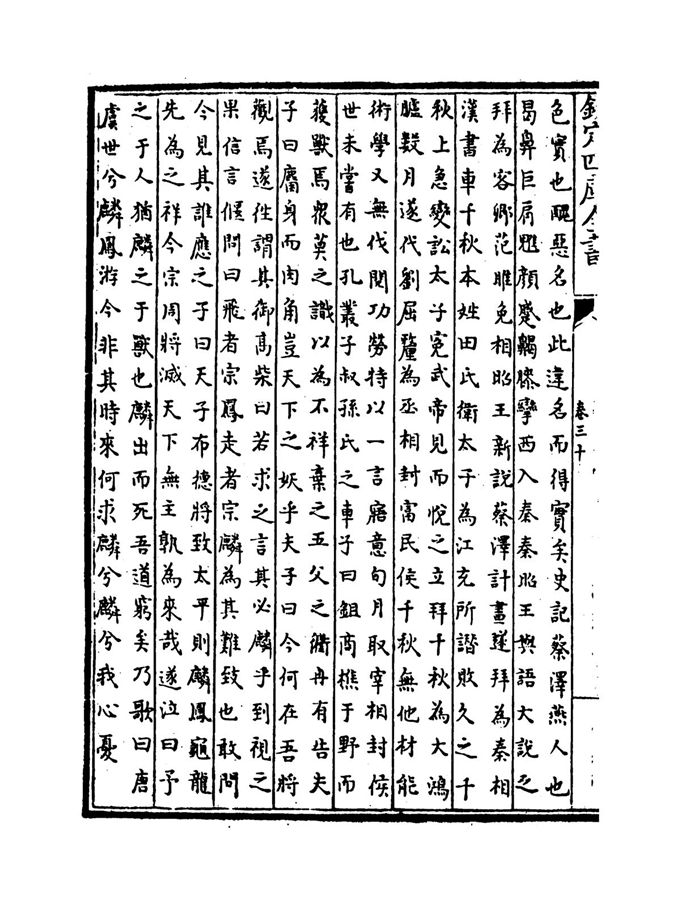 欽定四庫全書
卷三十
色實也醜惡名也此違名而得實矣史記蔡澤燕人也
曷鼻巨肩魋顔蹙齃膝攣西入秦秦昭王與語大說之
拜為客卿范睢免相昭王新說蔡澤計畫遂拜為秦相
漢書車千秋本姓田氏衛太子為江充所譖敗久之千
秋上急變訟太子冤武帝見而悅之立拜千秋為大鴻
臚數月遂代劉屈氂為丞相封富民侯千秋無他材能
術學又無伐閱功勞特以一言寤意旬月取宰相封侯
世未嘗有也孔叢子叔孫氏之車子曰鉏商樵于野而
獲獸焉衆莫之識以為不祥棄之五父之衢冉有告夫
子曰麕身而肉角豈天下之妖乎夫子曰今何在吾將
觀焉遂往謂其御高柴曰若求之言其必麟乎到視之
果信言偃問曰飛者宗鳳走者宗麟為其難致也敢問
今見其誰應之子曰天子布德將致太平則麟鳳龜龍
先為之祥今宗周將滅天下無主孰為來哉遂泣曰予
之于人猶麟之于獸也麟出而死吾道窮矣乃歌曰唐
虞世兮麟鳳游今非其時來何求麟兮麟兮我心憂